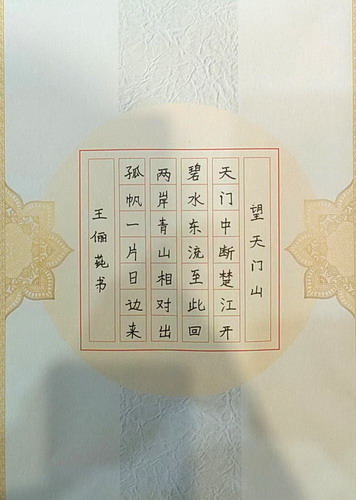 望天门山
天门中断楚江开
碧水东流至此回
两岸青山相对出
孤帆一片日边来
王俪莼书